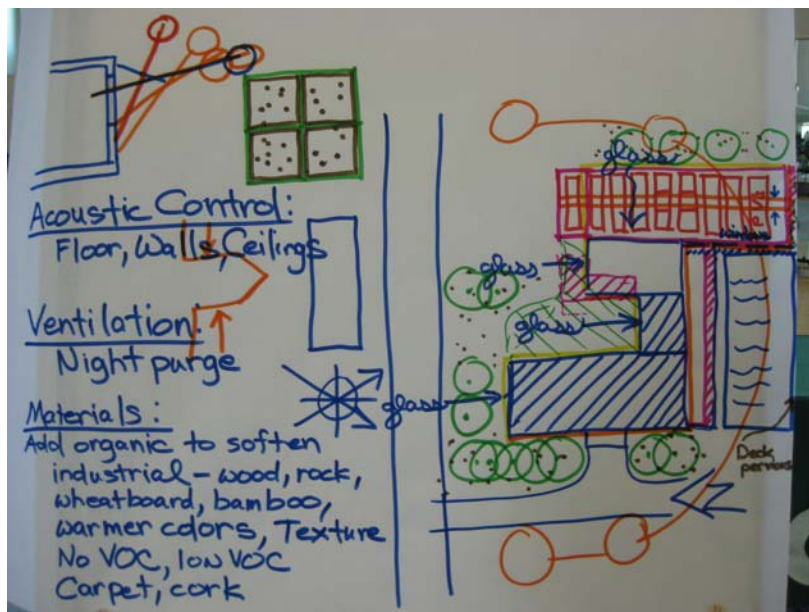 Acoustic Control:
Floor, Walls, Ceilings
Ventilation:
Night purge
Materials:
Add organic to soften
industrial – wood, rock,
wheatboard, bamboo,
warmer colors, Texture
No VOC, low VOC
Carpet, cork
glass
glass
glass
glass
Deck
pervious